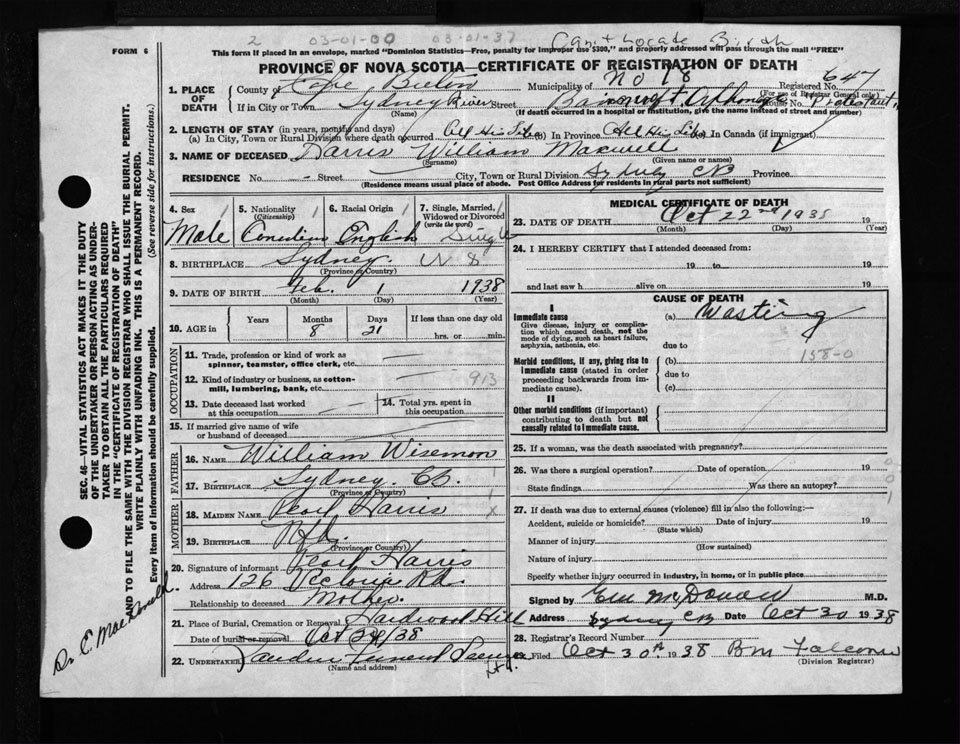 2 03-01-00 03-01-37 Can't Locate Birth
FORM 6
This form if placed in an envelope, marked "Dominion Statistics—Free, penalty for improper use $300," and properly addressed will pass through the mail "FREE"
PROVINCE OF NOVA SCOTIA—CERTIFICATE OF REGISTRATION OF DEATH
1. PLACE OF DEATH County of Cape Breton Municipality of No 18 Registered No. 647
(For use of Registrar General only)
If in City or Town Sydney River Street House No. Protestant
(Name) (If death occurred in a hospital or institution, give the name instead of street and number)
2. LENGTH OF STAY (in years, months and days)
(a) In City, Town or Rural Division where death occurred All His Life (b) In Province All His Life (c) In Canada (if immigrant)
3. NAME OF DECEASED Harris William Maxwell
(Surname) (Given name or names)
RESIDENCE No. - Street City, Town or Rural Division Sydney CB Province
(Residence means usual place of abode. Post Office Address for residents in rural parts not sufficient)
4. Sex Male
5. Nationality (Citizenship) Canadian
6. Racial Origin English
7. Single, Married, Widowed or Divorced (write the word) Single
8. BIRTHPLACE Sydney
(Province or Country)
9. DATE OF BIRTH Feb. 1 1938
(Month) (Day) (Year)
10. AGE in Years Months Days If less than one day old
8 21 hrs. or min.
OCCUPATION
11. Trade, profession or kind of work as spinner, teamster, office clerk, etc.
12. Kind of industry or business, as cotton-mill, lumbering, bank, etc. 913
13. Date deceased last worked at this occupation
14. Total yrs. spent in this occupation
15. If married give name of wife or husband of deceased
FATHER
16. NAME William Wiseman
17. BIRTHPLACE Sydney CB.
(Province or Country)
MOTHER
18. MAIDEN NAME Pearl Harris
19. BIRTHPLACE Nfld.
(Province or Country)
20. Signature of informant Pearl Harris
Address 126 Victoria Rd.
Relationship to deceased Mother.
21. Place of Burial, Cremation or Removal Hardwood Hill
Date of burial or removal Oct 24/38
22. UNDERTAKER Funeral
(Name and address)
MEDICAL CERTIFICATE OF DEATH
23. DATE OF DEATH Oct 22nd 1938 19
(Month) (Day) (Year)
24. I HEREBY CERTIFY that I attended deceased from:
19 to 19
and last saw h alive on 19
CAUSE OF DEATH
I
Immediate cause (a) Wasting
Give disease, injury or complication which caused death, not the mode of dying, such as heart failure, asphyxia, asthenia, etc.
due to
158-0
Morbid conditions, if any, giving rise to immediate cause (stated in order proceeding backwards from immediate cause).
(b)
due to
(c)
II
Other morbid conditions (if important) contributing to death but not causally related to immediate cause.
25. If a woman, was the death associated with pregnancy?
26. Was there a surgical operation? Date of operation 19
State findings Was there an autopsy?
27. If death was due to external causes (violence) fill in also the following:—
Accident, suicide or homicide? Date of injury 19
(State which)
Manner of injury
(How sustained)
Nature of injury
Specify whether injury occurred in industry, in home, or in public place
Signed by M.D.
Address Sydney CB Date Oct 30 1938
28. Registrar's Record Number
29. Filed Oct 30th 1938 BM Falconer
(Division Registrar)
SEC. 46—VITAL STATISTICS ACT MAKES IT THE DUTY
OF THE UNDERTAKER OR PERSON ACTING AS UNDER-
TAKER TO OBTAIN ALL THE PARTICULARS REQUIRED
IN THE "CERTIFICATE OF REGISTRATION OF DEATH"
AND TO FILE THE SAME WITH THE DIVISION REGISTRAR WHO SHALL ISSUE THE BURIAL PERMIT.
WRITE PLAINLY WITH UNFADING INK. THIS IS A PERMANENT RECORD.
Every item of Information should be carefully supplied. (See reverse side for instructions.)
Dr. C. MacDonald.